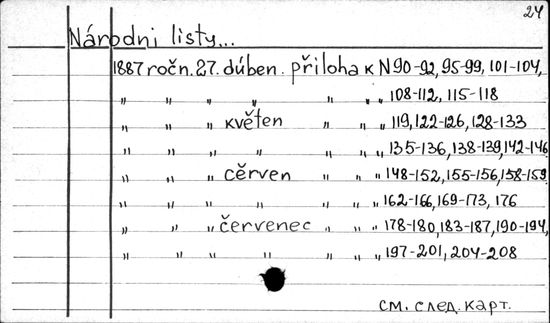 24
Národni listy...
1887 ročn. 27. dúben. příloha k N 90-92, 95-99, 101-104,
„ „ „ „ „ „ „ 108-112, 115-118
„ „ „ květen „ „ „ 119, 122-126, 128-133
„ „ „ „ „ „ „ 135-136, 138-139, 142-146
„ „ „ cěrven „ „ „ 148-152, 155-156, 158-159
„ „ „ „ „ „ „ 162-166, 169-173, 176
„ „ „ červenec „ „ „ 178-180, 183-187, 190-194,
„ „ „ „ „ „ „ 197-201, 204-208
см. след. карт.